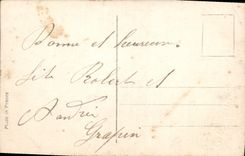 Bonne et heureuse
fête Robert et
Andrée
MADE IN FRANCE